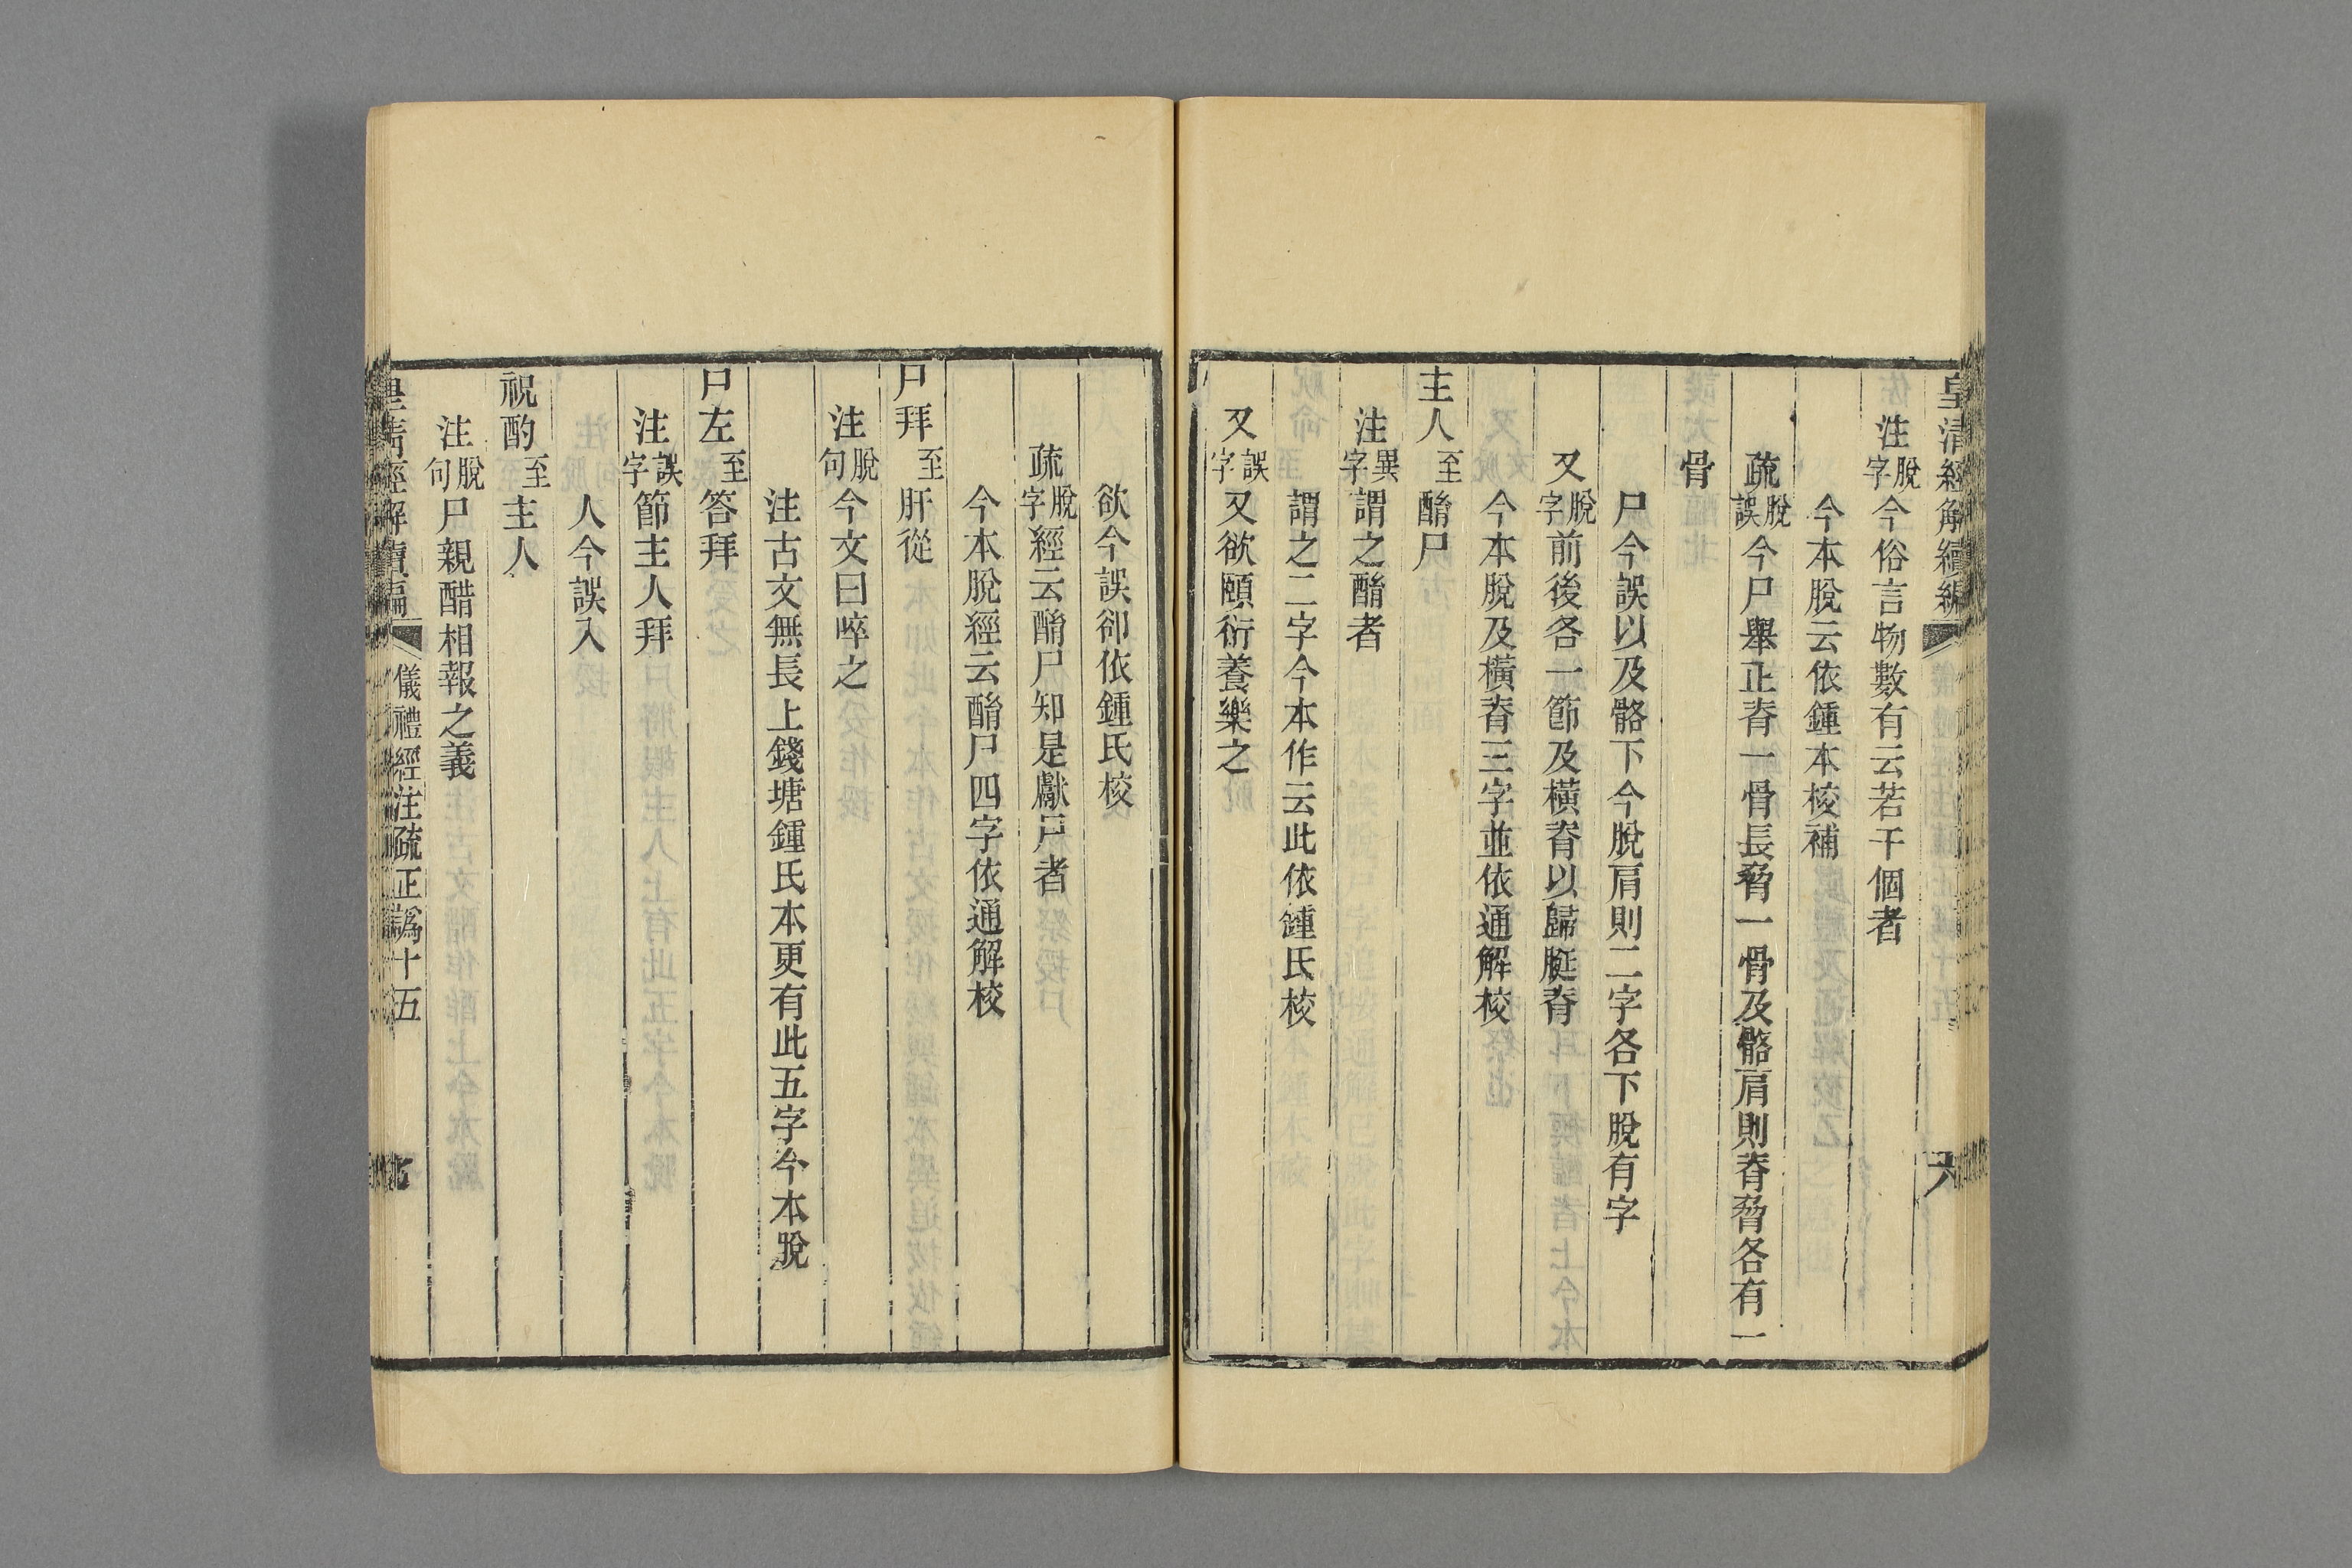 皇清經解續編
六
注脫字今俗言物數有云若干個者
今本脫云依鍾本校補
疏脫誤今尸舉正脊一骨長脅一骨及骼肩則脊脅各有一
骨
尸今誤以及骼下今脫肩則二字各下脫有字
又脫字前後各一節及橫脊以歸脡脊
今本脫及橫脊三字並依通解校
主人至酳尸
注異字謂之酳者
謂之二字今本作云此依鍾氏校
又誤字又欲頤衍養樂之
欲今誤卻依鍾氏校
疏脫字經云酳尸知是獻尸者
今本脫經云酳尸四字依通解校
尸拜至肝從
注脫句今文曰啐之
注古文無長上錢塘鍾氏本更有此五字今本脫
尸左至答拜
注誤字節主人拜
人今誤入
祝酌至主人
注脫句尸親醋相報之義
皇清經解續編
儀禮經注疏正譌十五